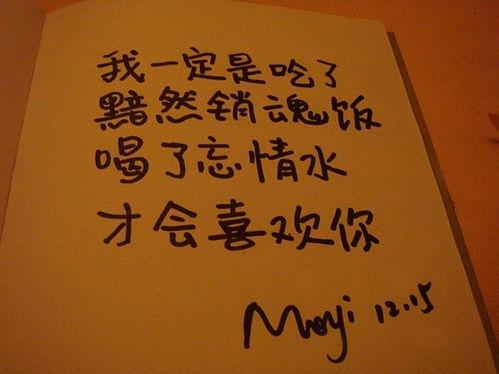 我一定是吃了
黯然销魂饭
喝了忘情水
才会喜欢你
12.15